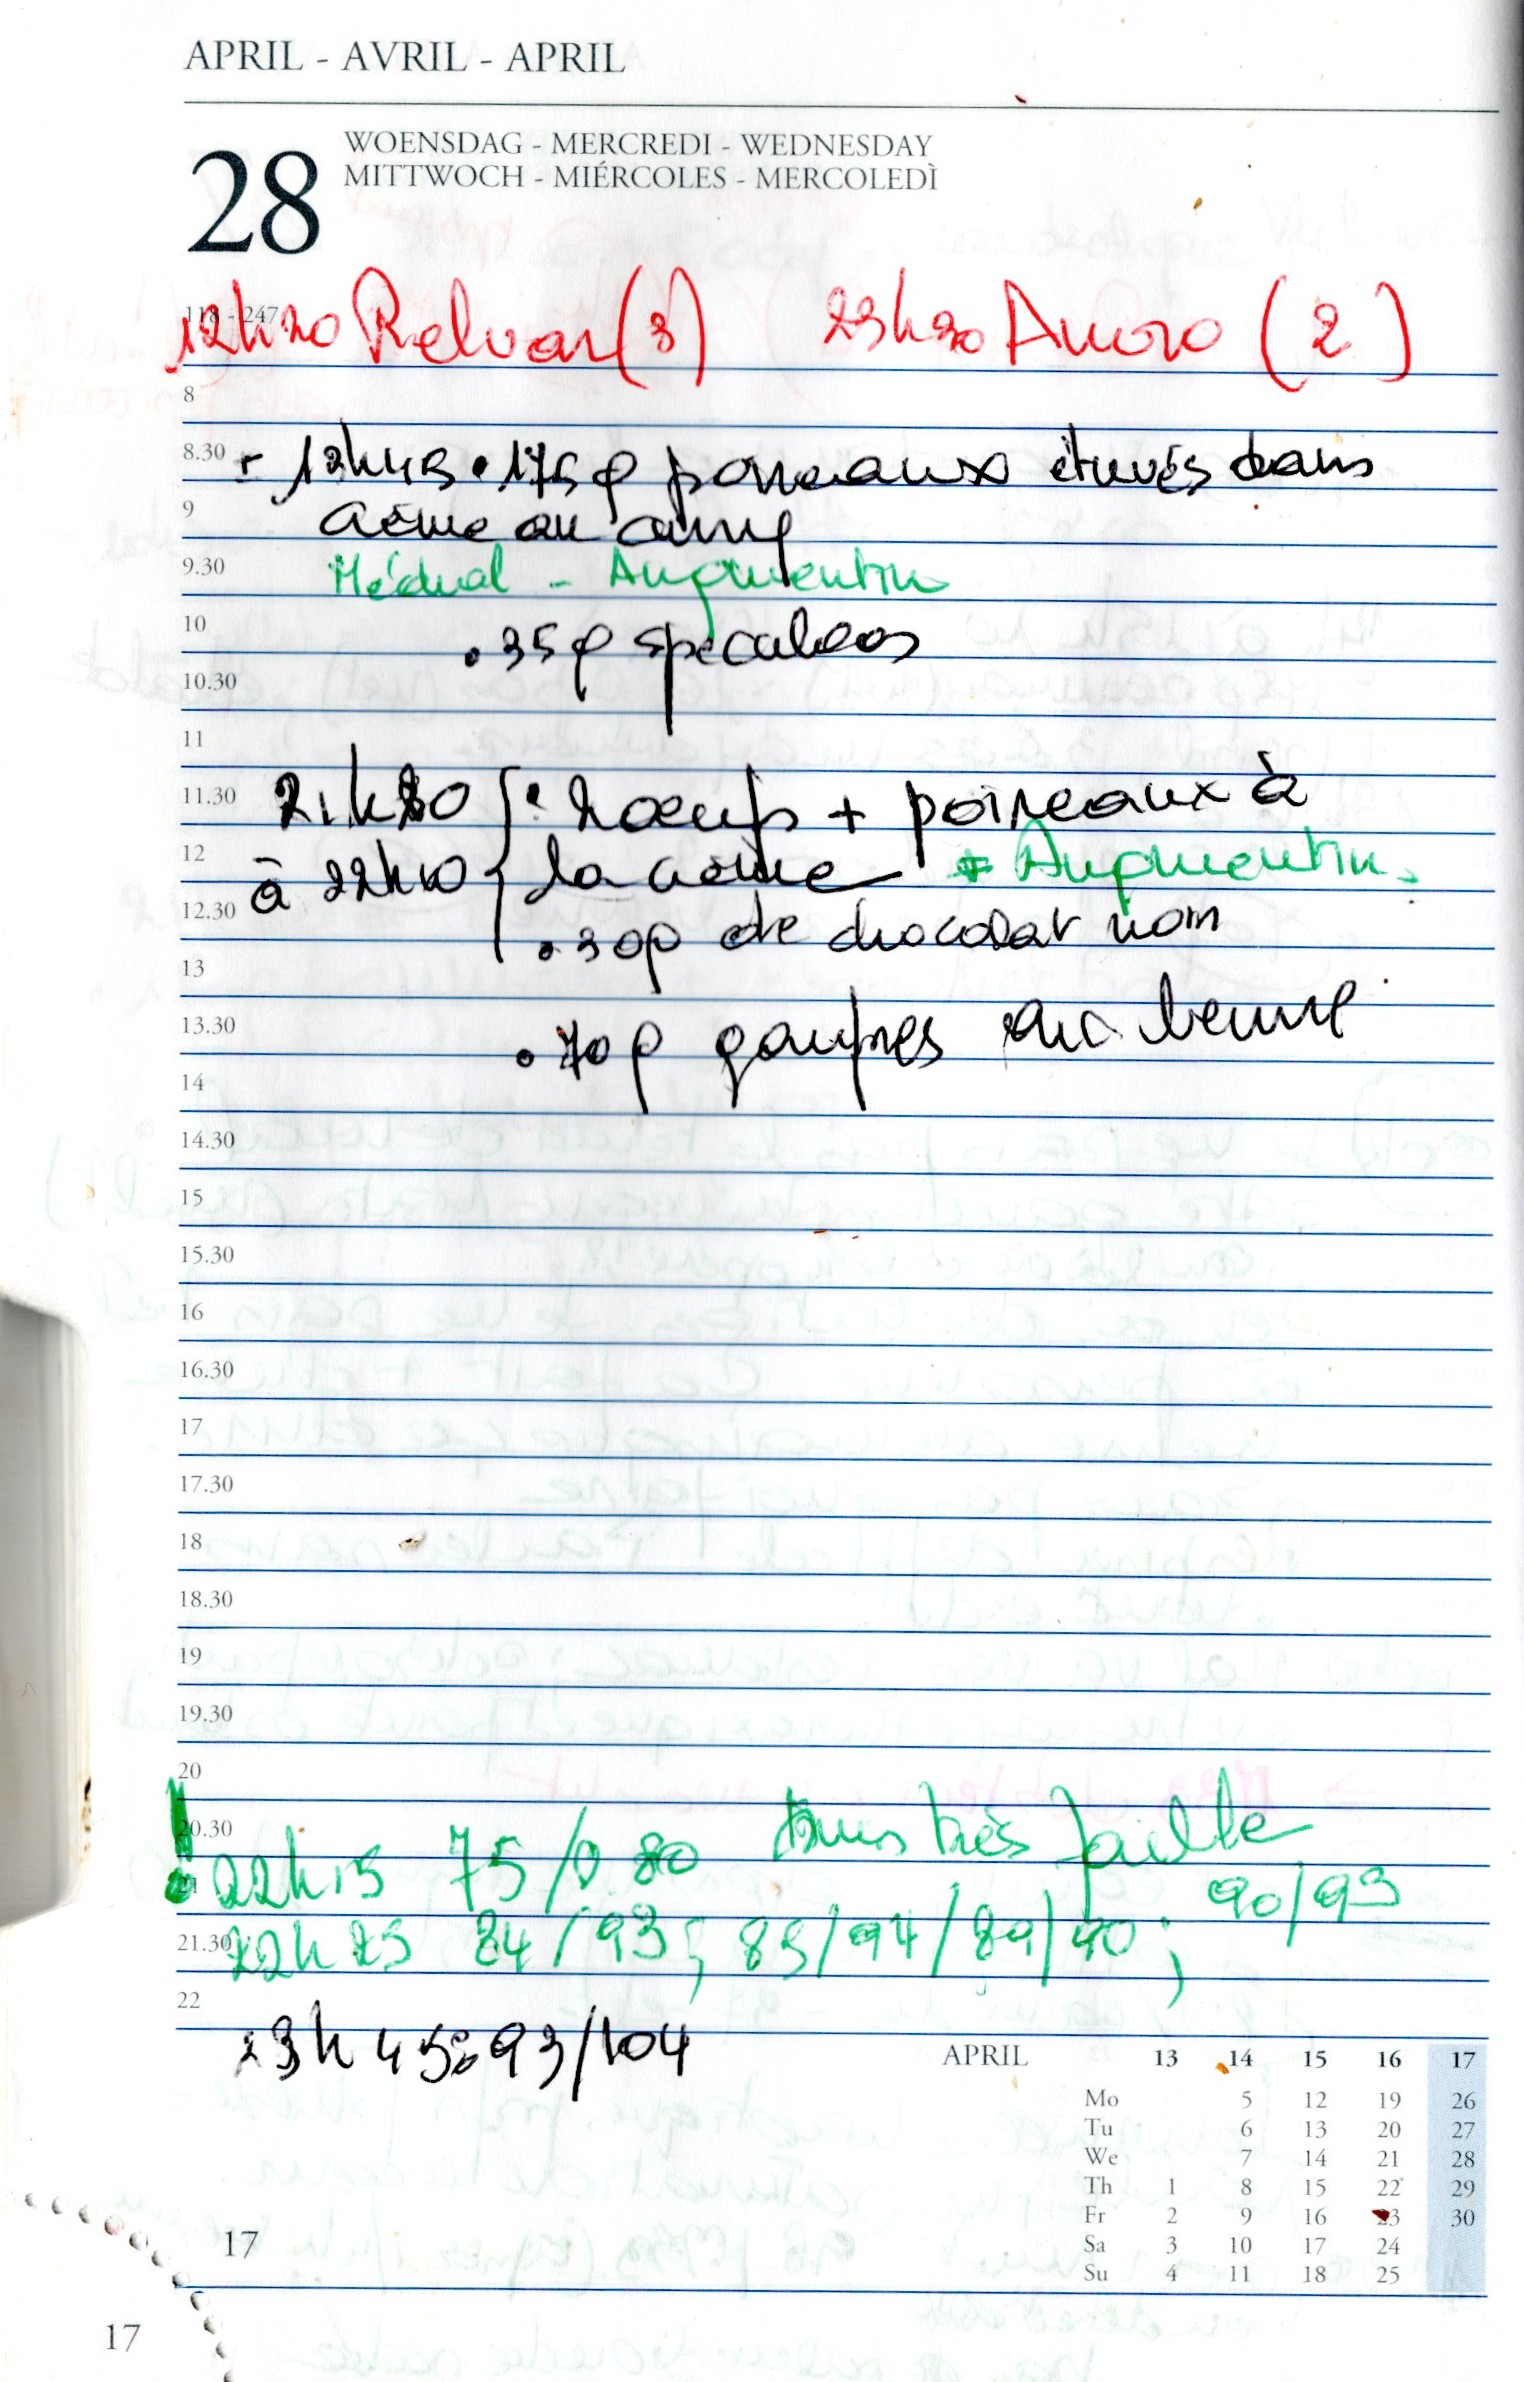 APRIL - AVRIL - APRIL
28
WOENSDAG - MERCREDI - WEDNESDAY
MITTWOCH - MIÉRCOLES - MERCOLEDÌ
118 - 247
12h20 Relvar (3) 23h20 Anoro (2)
8
8.30 - 12h45 • 175g poireaux étuvés dans
9 crème au curry
9.30 Médrol - Augmentin
10 • 35g speculoos
10.30
11
11.30 21h30 { • 2 oeufs + poireaux à
12 à 22h10 la crème + Augmentin
12.30 • 30g de chocolat noir
13
13.30 • 70g gaufres au beurre
14
14.30
15
15.30
16
16.30
17
17.30
18
18.30
19
19.30
20
20.30 très faible
21 ! 22h15 75/ 80 90/93
21.30 22h25 84/93; 85/94/89/90;
22
23h45: 93/104
APRIL 13 14 15 16 17
Mo 5 12 19 26
Tu 6 13 20 27
We 7 14 21 28
Th 1 8 15 22 29
Fr 2 9 16 23 30
Sa 3 10 17 24
Su 4 11 18 25
17
17